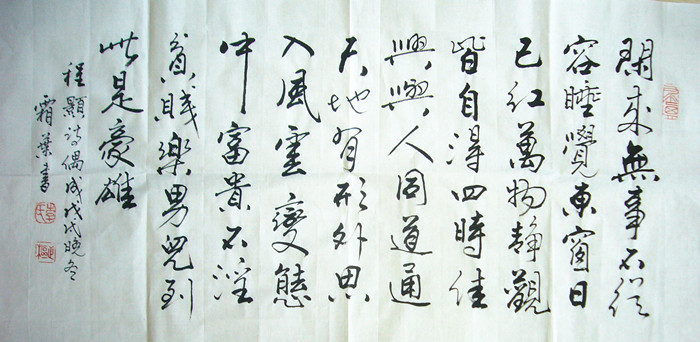 閑來無事不從
容睡覺東窗日
已紅萬物靜觀
皆自得四時佳
興與人同道通
天地有形外思
入風雲變態
中富貴不淫
貧賤樂男兒到
此是豪雄
程顥詩偶成戊戌晚冬
霜葉書